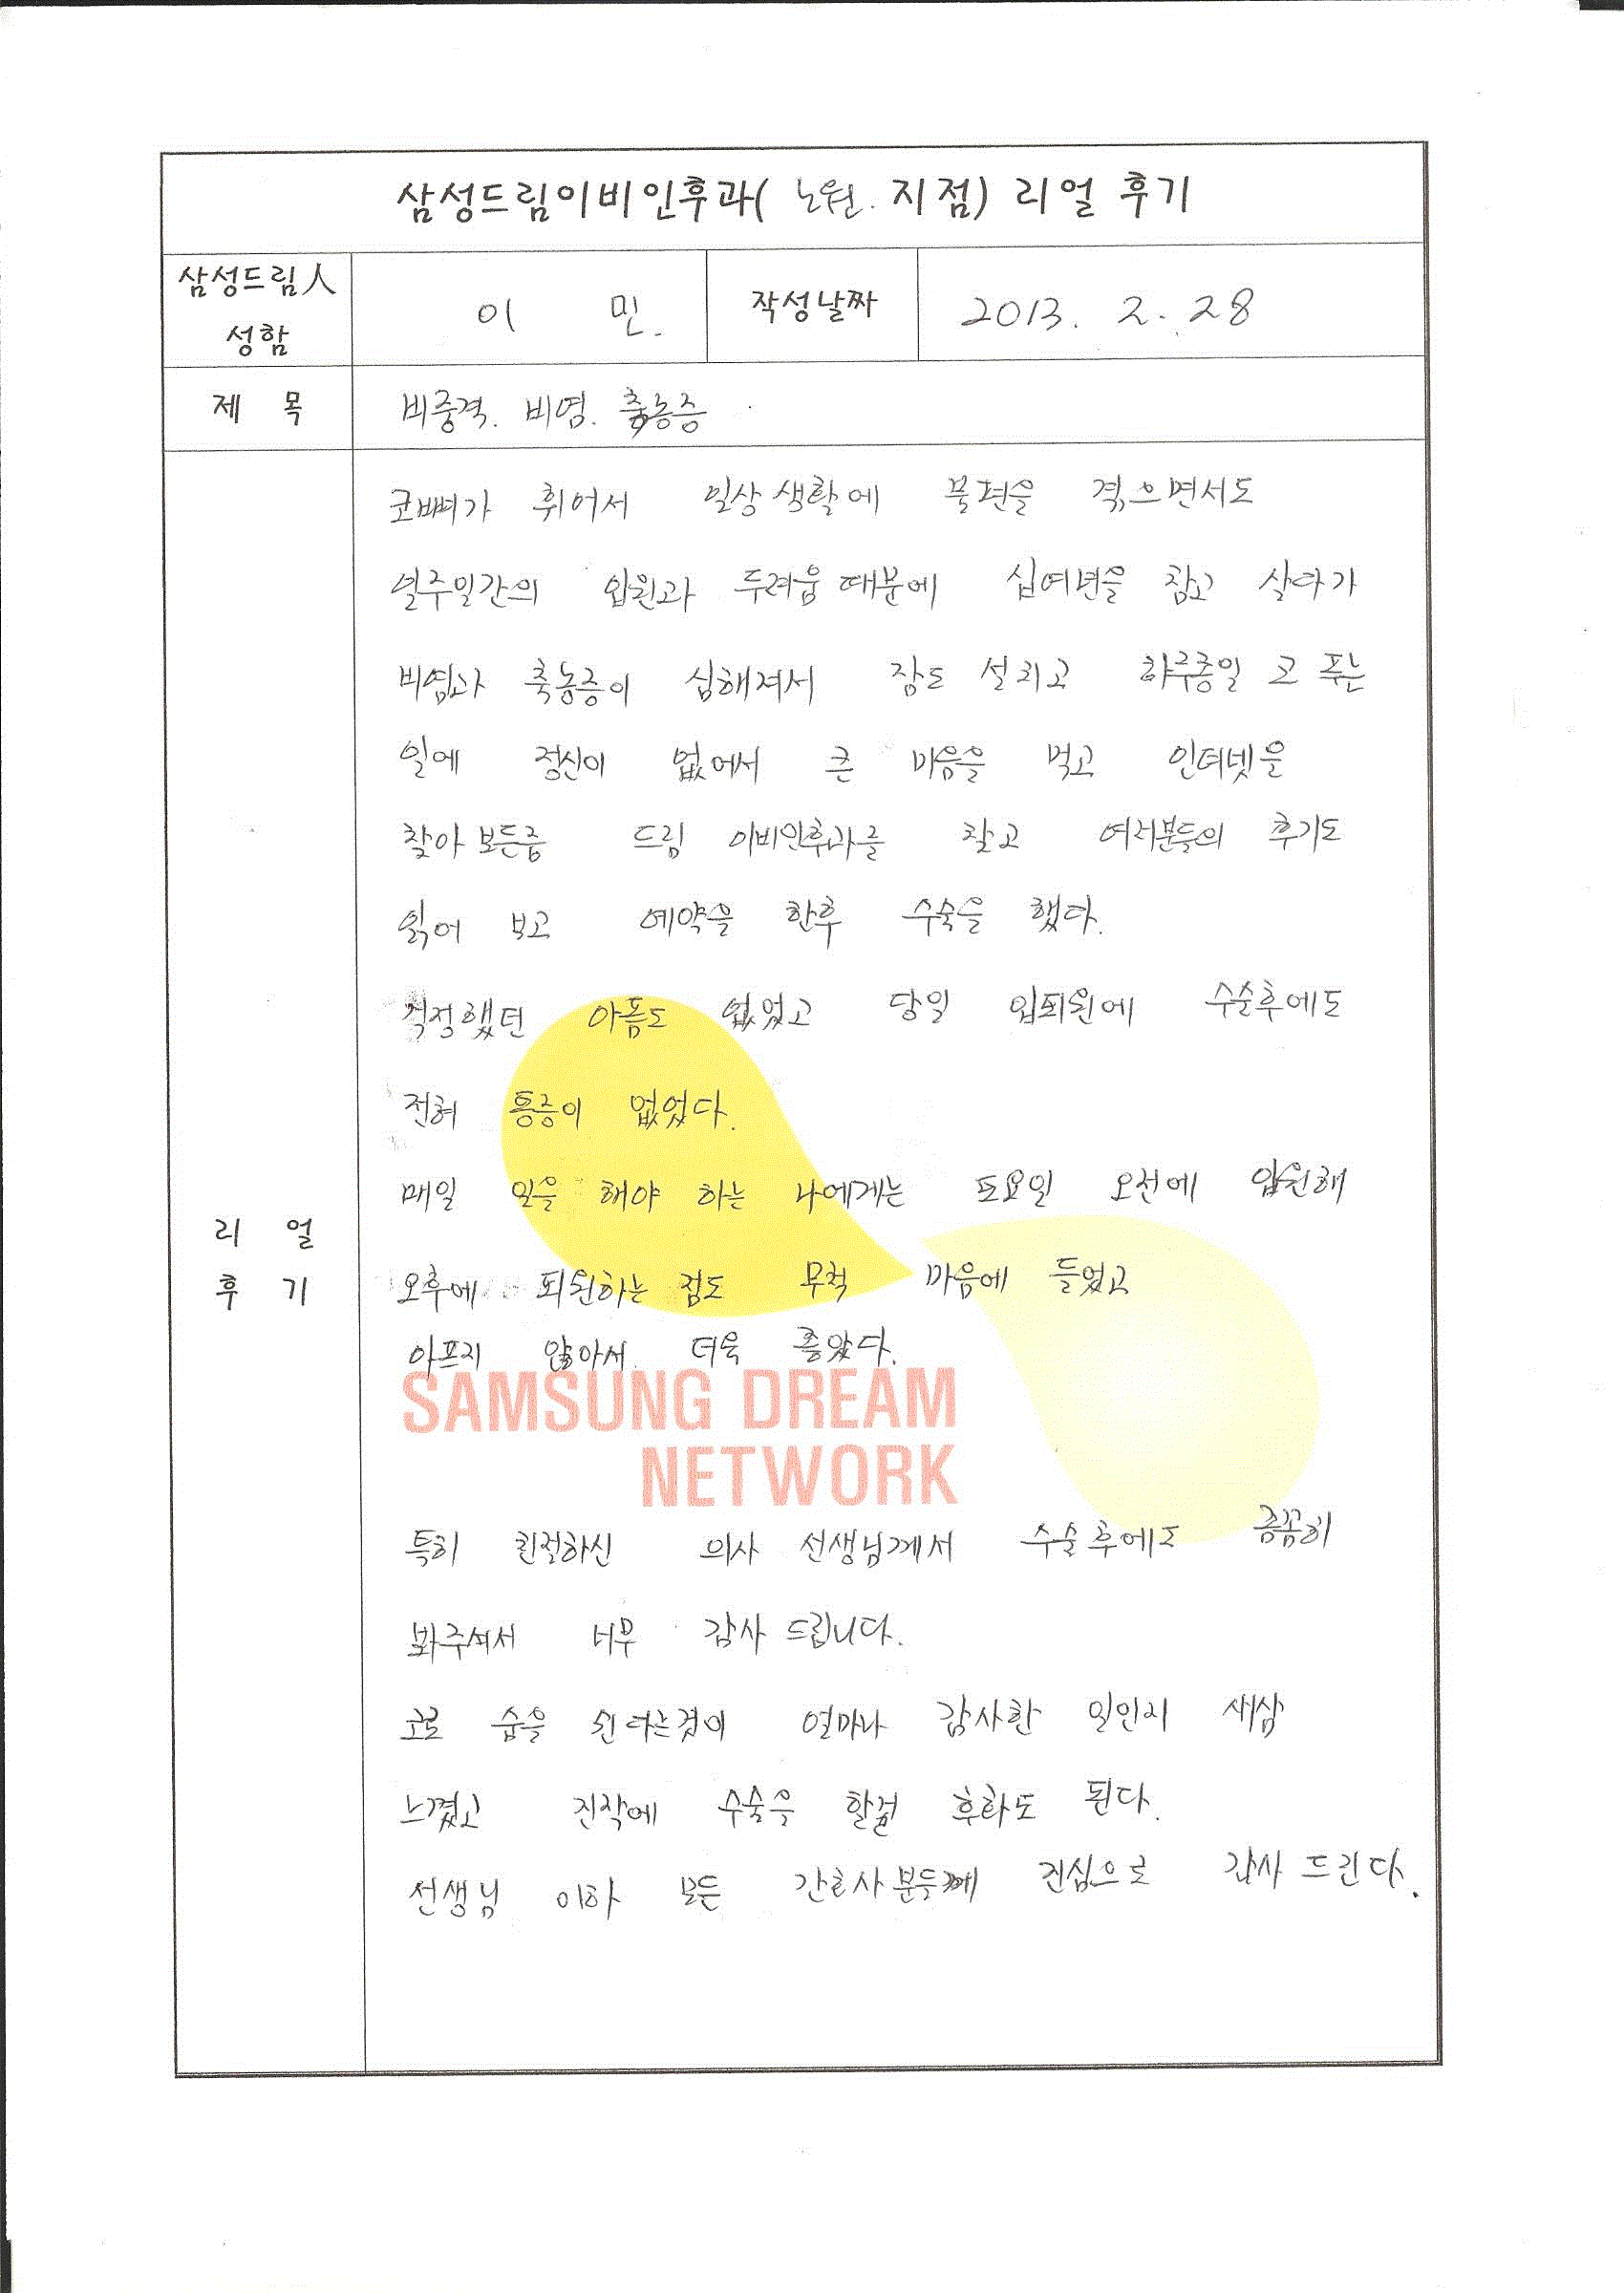 삼성드림이비인후과( 노원. 지점) 리얼 후기
삼성드림人
성함
이 민.
작성날짜
2013. 2. 28
제 목
비중격. 비염. 축농증
코뼈가 휘어서 일상생활에 불편을 겪으면서도
일주일간의 입원과 두려움 때문에 십여년을 참고 살다가
비염과 축농증이 심해져서 잠도 설치고 하루종일 코 푸는
일에 정신이 없어서 큰 마음을 먹고 인터넷을
찾아 보든중 드림 이비인후과를 찾고 여러분들의 후기도
읽어 보고 예약을 한후 수술을 했다.
걱정했던 아픔도 없었고 당일 입퇴원에 수술후에도
전혀 통증이 없었다.
매일 일을 해야 하는 나에게는 토요일 오전에 입원해
오후에 퇴원하는 점도 무척 마음에 들었고
아프지 않아서 더욱 좋았다.
SAMSUNG DREAM
NETWORK
특히 친절하신 의사 선생님께서 수술후에도 꼼꼼히
봐주셔서 너무 감사 드립니다.
코로 숨을 쉰다는것이 얼마나 감사한 일인지 새삼
느꼈고 진작에 수술을 할걸 후회도 된다.
선생님 이하 모든 간호사분들께 진심으로 감사 드린다.
리 얼
후 기